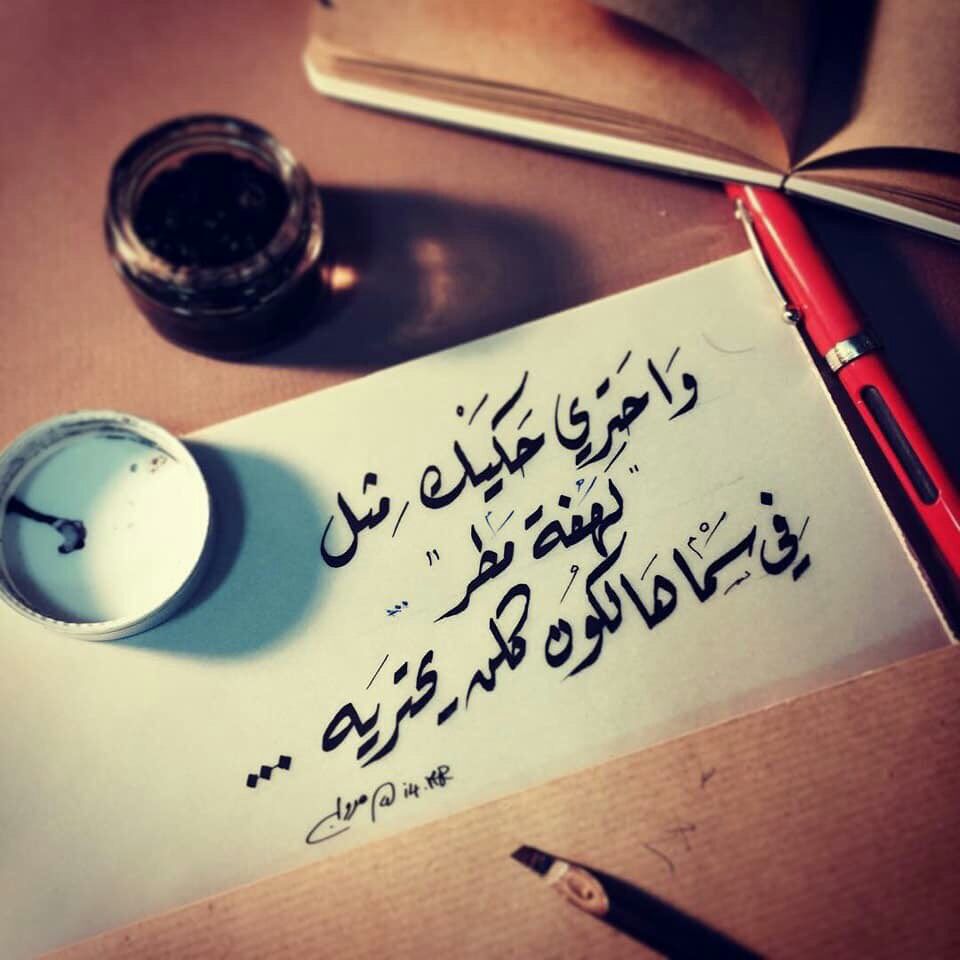 وَاحَتري حَكيَكْ مِثلَ
"لهَفة مَطر"
فِي سَمْا هَالكوُن كلن يحتريَه ...
مروان @i4.MR